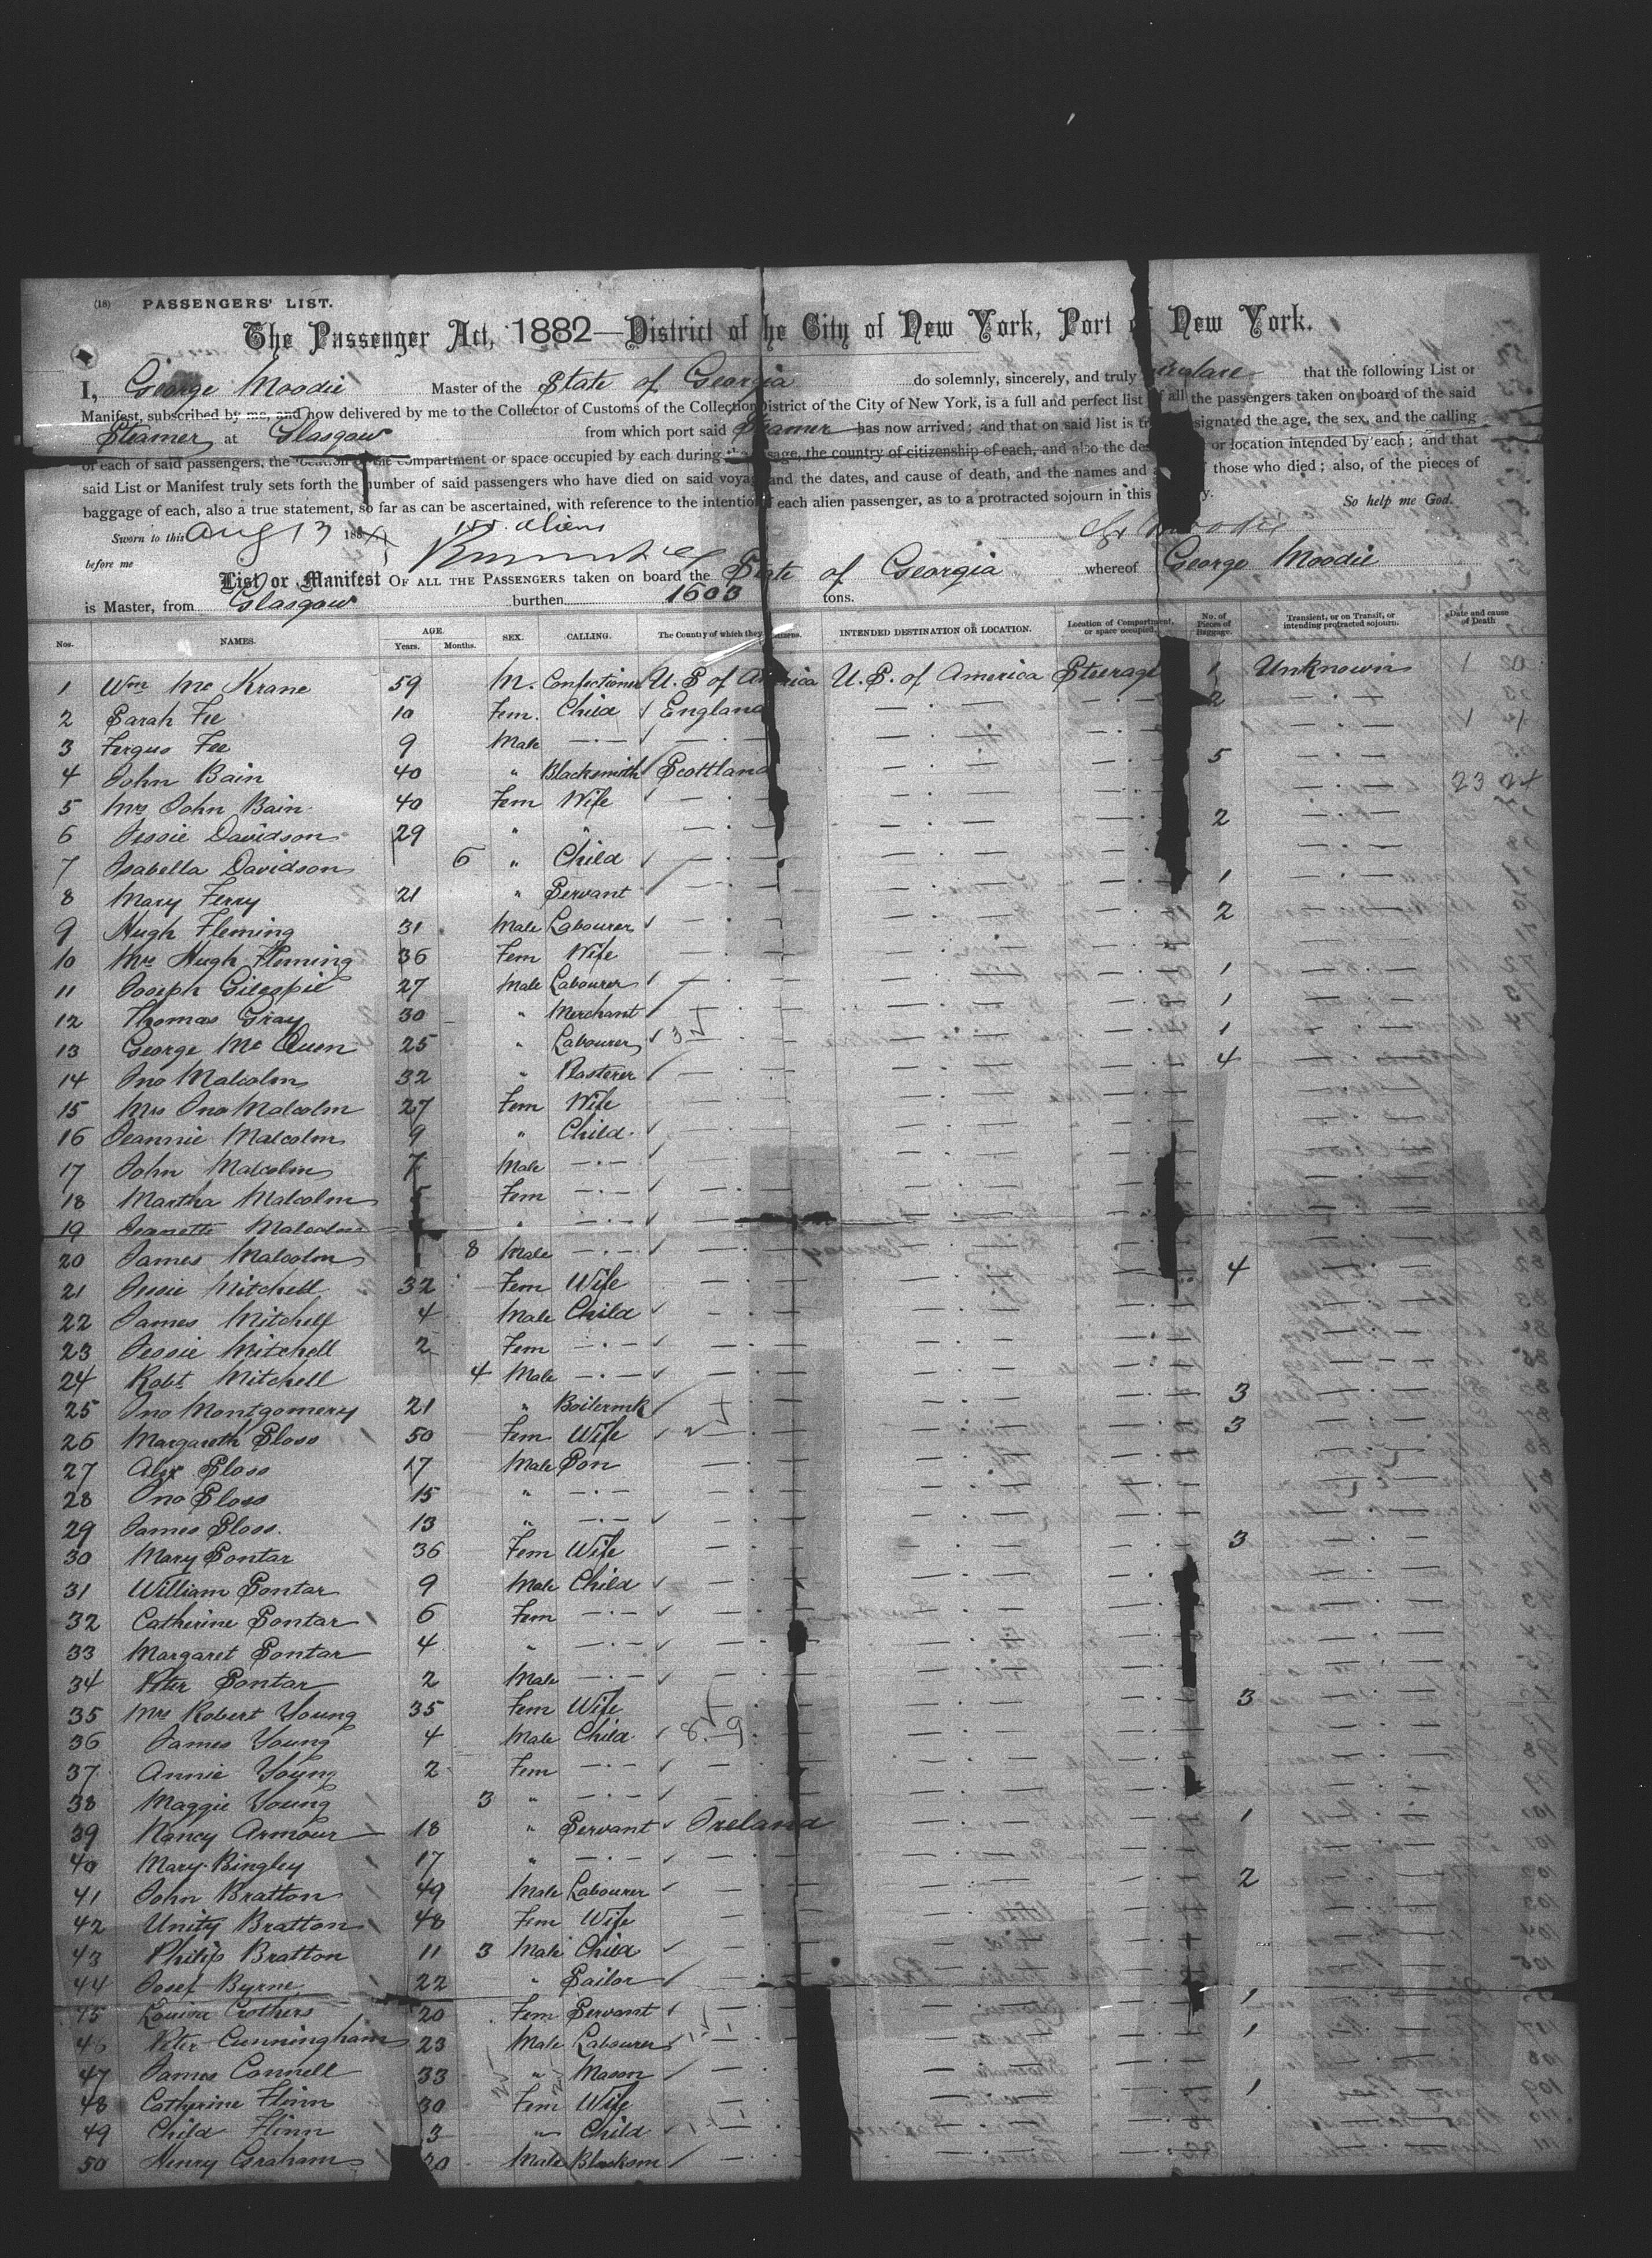 (18) PASSENGERS' LIST.
The Passenger Act, 1882—District of the City of New York, Port of New York.
I, George Moodie Master of the State of Georgia do solemnly, sincerely, and truly declare that the following List or
Manifest, subscribed by me, and now delivered by me to the Collector of Customs of the Collection District of the City of New York, is a full and perfect list of all the passengers taken on board of the said
Steamer at Glasgow from which port said Steamer has now arrived; and that on said list is designated the age, the sex, and the calling
of each of said passengers, the location of the compartment or space occupied by each during the passage, the country of citizenship of each, and also the or location intended by each; and that
said List or Manifest truly sets forth the number of said passengers who have died on said voyage and the dates, and cause of death, and the names and those who died; also, of the pieces of
baggage of each, also a true statement, so far as can be ascertained, with reference to the intention each alien passenger, as to a protracted sojourn in this So help me God.
Sworn to this Aug 13 188 Aliens Moodie
before me
List or Manifest OF ALL THE PASSENGERS taken on board the State of Georgia whereof George Moodie
is Master, from Glasgow burthen 1603 tons.
Nos. NAMES. AGE. Years. Months. SEX. CALLING. The Country of which they Citizens. INTENDED DESTINATION OR LOCATION. Location of Compartment, or space occupied. No. of Pieces of Baggage. Transient, or on Transit, or intending protracted sojourn. Date and cause of Death
1 Wm Mc Krane 59 M. Confectioner U.S of America U.S. of America Steerage 1 Unknown
2 Sarah Fee 10 Fem. Child England — . — — . — 2 — . —
3 Fergus Fee 9 Male — . — — . — — . — — . — — . —
4 John Bain 40 " Blacksmith Scottland — . — — . — 5 — . —
5 Mrs John Bain 40 Fem Wife — . — — . — — . — — . —
6 Jessie Davidson 29 " " — . — — . — — . — 2 — . —
7 Isabella Davidson 6 " Child — . — — . — — . — — . —
8 Mary Ferry 21 " Servant — . — — . — — . — 1 — . —
9 Hugh Fleming 31 Male Labourer — . — — . — — . — 2 — . —
10 Mrs Hugh Fleming 36 Fem Wife — . — — . — — . — — . —
11 Joseph Gilespie 27 Male Labourer — . — — . — — . — 1 — . —
12 Thomas Gray 30 " Merchant — . — — . — — . — 1 — . —
13 George Mc Quen 25 " Labourer — . — — . — — . — 1 — . —
14 Jno Malcolm 32 " Plasterer — . — — . — — . — 4 — . —
15 Mrs Jno Malcolm 27 Fem Wife — . — — . — — . — — . —
16 Jeannie Malcolm 9 " Child — . — — . — — . — — . —
17 John Malcolm 7 Male — . — — . — — . — — . — — . —
18 Martha Malcolm 5 Fem — . — — . — — . — — . — — . —
19 Jeanette Malcolm " — . — — . — — . — — . — — . —
20 James Malcolm 8 Male — . — — . — — . — — . — — . —
21 Jessie Mitchell 32 Fem Wife — . — — . — — . — 4 — . —
22 James Mitchell 4 Male Child — . — — . — — . — — . —
23 Jessie Mitchell 2 Fem — . — — . — — . — — . — — . —
24 Robt Mitchell 4 Male — . — — . — — . — — . — — . —
25 Jno Montgomery 21 " Boilermk — . — — . — — . — 3 — . —
26 Margareth Sloss 50 Fem Wife — . — — . — — . — 3 — . —
27 Alex Sloss 17 Male Son — . — — . — — . — — . —
28 Jno Sloss 15 " — . — — . — — . — — . — — . —
29 James Sloss. 13 " — . — — . — — . — — . — — . —
30 Mary Sontar 36 Fem Wife — . — — . — — . — 3 — . —
31 William Sontar 9 Male Child — . — — . — — . — — . —
32 Catherine Sontar 6 Fem — . — — . — — . — — . — — . —
33 Margaret Sontar 4 " — . — — . — — . — — . — — . —
34 Peter Sontar 2 Male — . — — . — — . — — . — — . —
35 Mrs Robert Young 35 Fem Wife — . — — . — — . — 3 — . —
36 James Young 4 Male Child — . — — . — — . — — . —
37 Annie Young 2 Fem — . — — . — — . — — . — — . —
38 Maggie Young 3 " — . — — . — — . — — . — — . —
39 Nancy Armour 18 " Servant Ireland — . — — . — 1 — . —
40 Mary Bingley 17 " — . — — . — — . — — . — — . —
41 John Bratton 49 Male Labourer — . — — . — — . — 2 — . —
42 Unity Bratton 48 Fem Wife — . — — . — — . — — . —
43 Philip Bratton 11 3 Male Child — . — — . — — . — — . —
44 Josef Byrne 22 " Sailor — . — — . — — . — — . —
45 Louisa Crothers 20 Fem Servant — . — — . — — . — 1 — . —
46 Peter Cunningham 23 Male Labourer — . — — . — — . — 1 — . —
47 James Connell 33 " Mason — . — — . — — . — — . —
48 Catherine Flinn 30 Fem Wife — . — — . — — . — 1 — . —
49 Child Flinn 3 " Child — . — — . — — . — — . —
50 Henry Graham 20 Male Blacksm — . — — . — — . — — . —